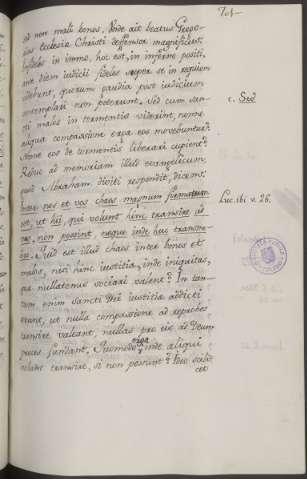 701
sed non mali bonos, Unde ait beatus Grego-
rius Ecclesia Christi deffensor magnificus:
Infideles in immo, hoc est, in inferno positi,
ante diem iudicii fideles super se in requiem
videbunt, quorum gaudia post iudicium
contemplari non poterunt. Sed cum san-
cti malos in tormentis viderint, nonne
aliqua compassione erga eos movebuntur?
Nonne eos de tormentis liberari cupient?
c. Sed
Redue ad memoriam illud evangelicum,
quod Abraham diviti respondit, dicens:
Inter nos et vos chaos magnum firmatum
est, ut hii, qui volunt hinc transire ad
vos, non possint, neque inde huc transme-
are. Quid est illud chaos inter bonos et
Luc. ibi v. 26.
malos, nisi hinc iustitia, inde iniquitas,
quae nullatenus sociari valent? In tan-
tum enim sancti Dei iustitia addicti
erunt, ut nulla compassione ad reprobos
transire valeant, nullas pro eis ad Deum
preces fundant. Quomodo ergo inde aliqui
volunt transire, si non possunt? Hoc scili-
cet